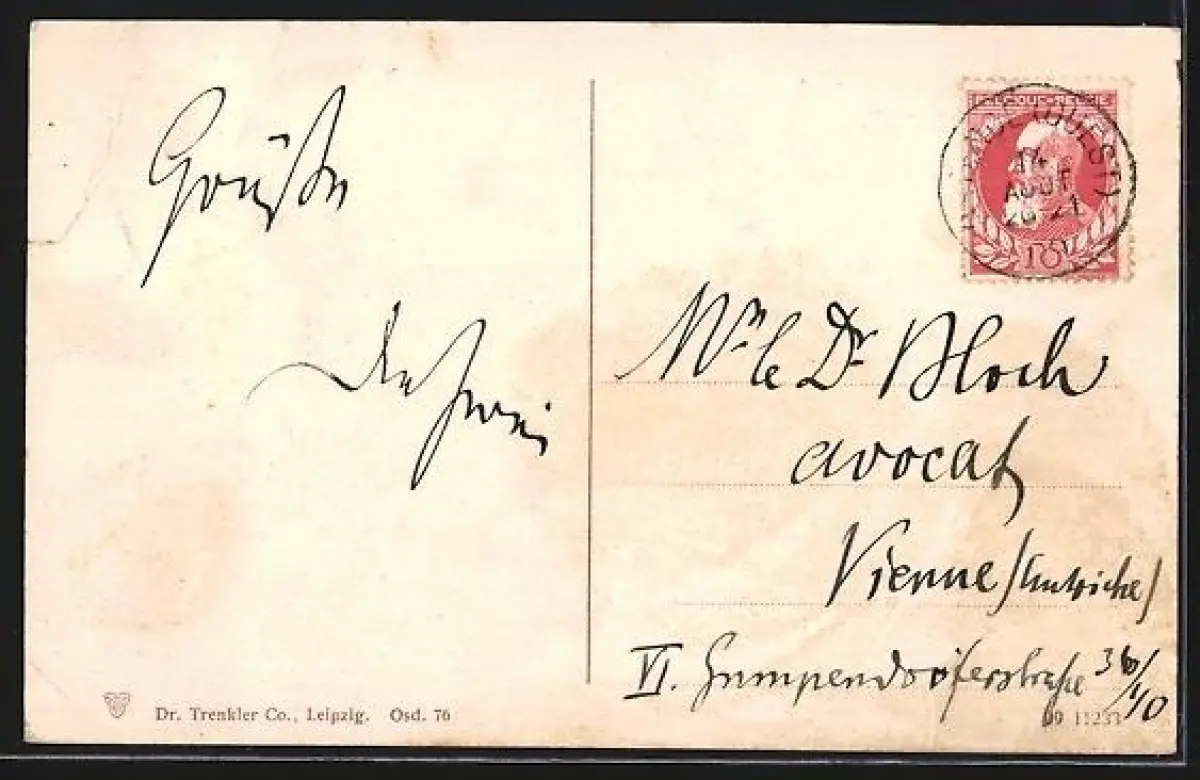 Grüße
BELGIQUE-BELGIË
14
AOUT
20-21
Mr. le Dr. Bloch
avocat
Vienne (Autriche)
VI. Gumpendorferstraße
Dr. Trenkler Co., Leipzig. Osd. 76
09 11233